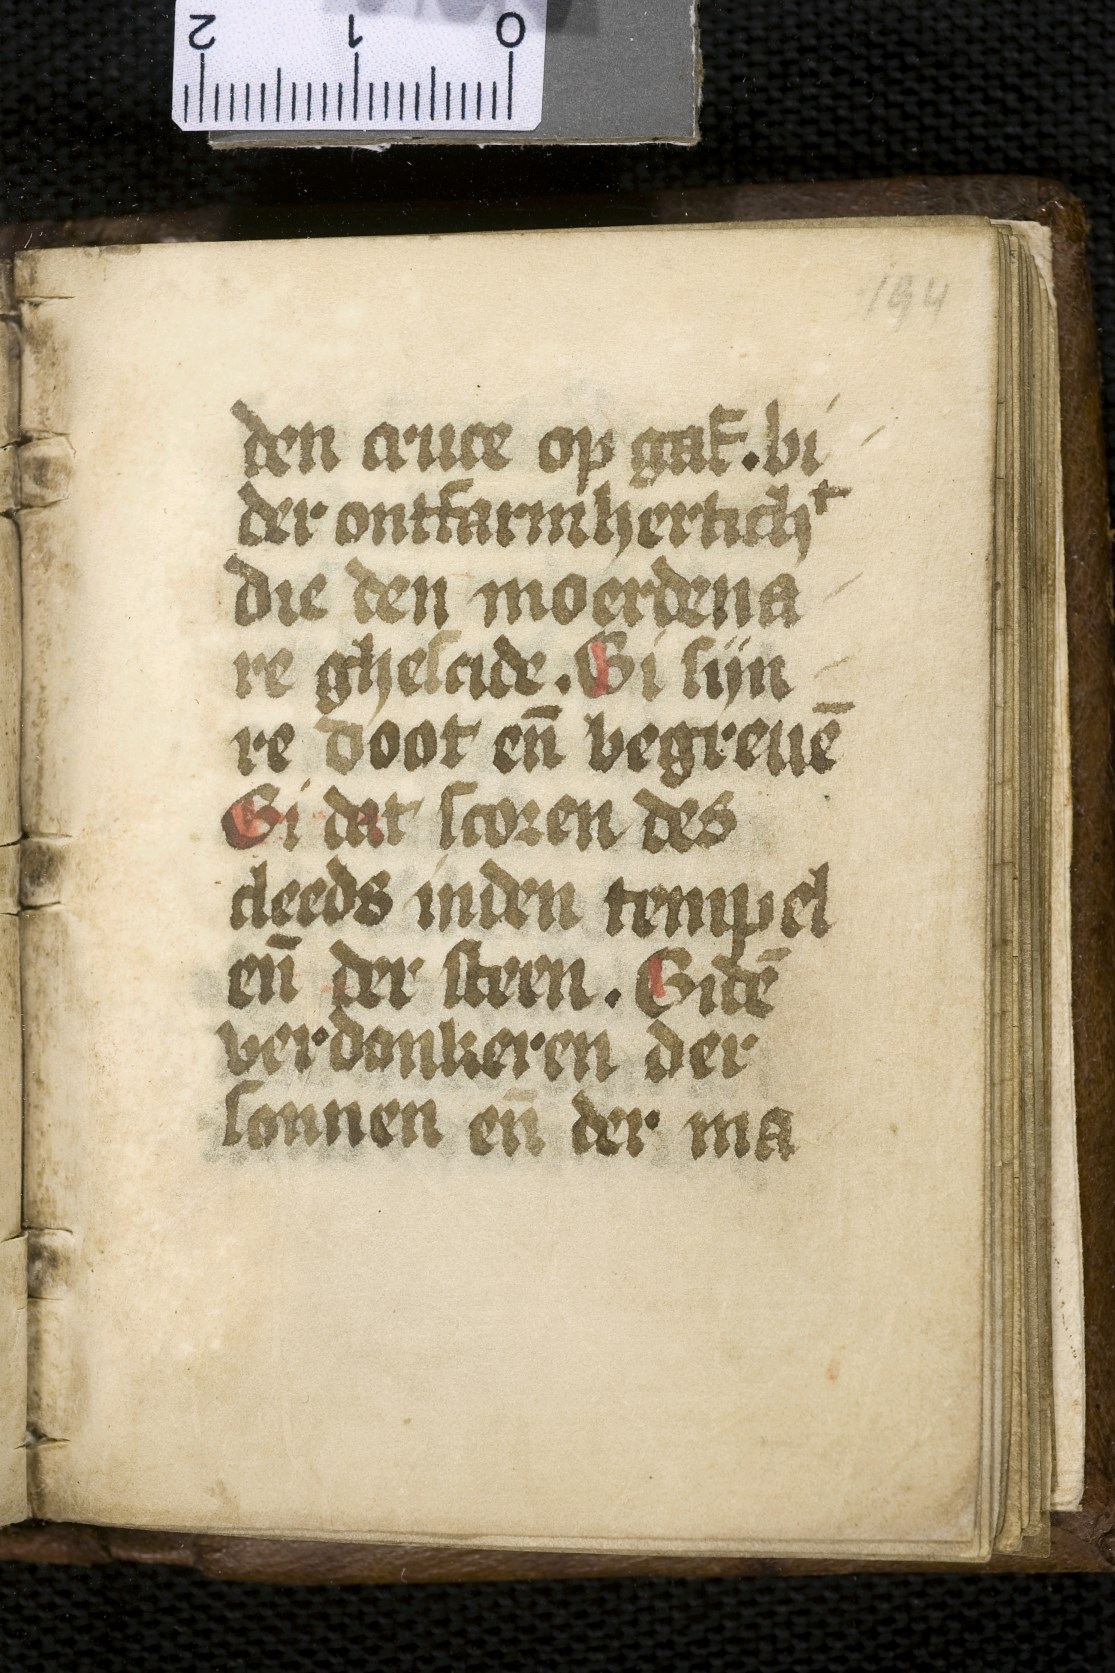 2 1 0
194
den cruce op gaf. bi
der ontfarmhertich^t
die den moerdena
re ghescide. Bi sijn
re doot en̄ begreuē
Bi dat scoren des
cleeds inden tempel
en̄ der steen. Bi dē
verdonkeren der
sonnen en̄ der ma